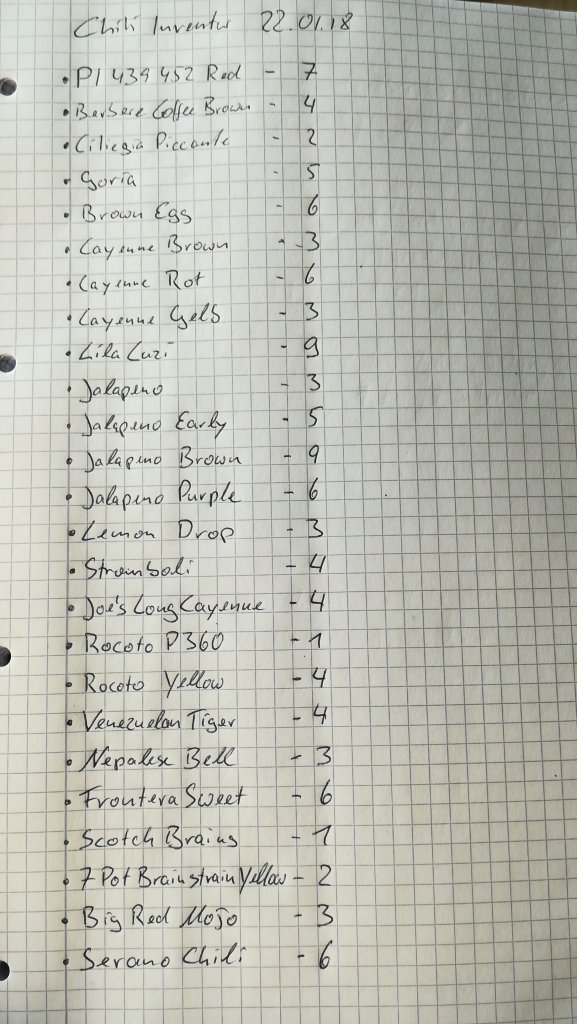 Chili Inventur 22.01.18
• PI 439 452 Red - 7
• Berbere Coffee Brown - 4
• Ciliegia Piccante - 2
• Goria - 5
• Brown Egg - 6
• Cayenne Brown - 3
• Cayenne Rot - 6
• Cayenne Gelb - 3
• Lila Luzi - 9
• Jalapeno - 3
• Jalapeno Early - 5
• Jalapeno Brown - 9
• Jalapeno Purple - 6
• Lemon Drop - 3
• Stromboli - 4
• Joe's Long Cayenne - 4
• Rocoto P360 - 1
• Rocoto Yellow - 4
• Venezuelan Tiger - 4
• Nepalese Bell - 3
• Frontera Sweet - 6
• Scotch Brains - 1
• 7 Pot Brainstrain Yellow - 2
• Big Red Mojo - 3
• Serano Chili - 6